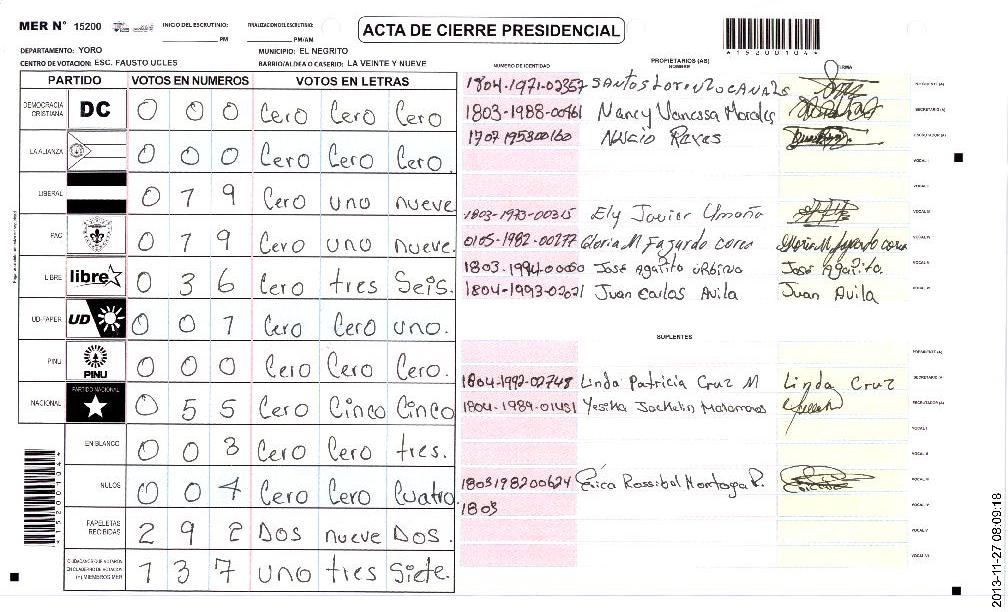 MER N° 15200
INICIO DEL ESCRUTINIO: PM
FINALIZACION DEL ESCRUTINIO: PM/AM
ACTA DE CIERRE PRESIDENCIAL
*15200104*
DEPARTAMENTO: YORO
MUNICIPIO: EL NEGRITO
CENTRO DE VOTACION: ESC. FAUSTO UCLES
BARRIO/ALDEA O CASERIO: LA VEINTE Y NUEVE
PARTIDO VOTOS EN NUMEROS VOTOS EN LETRAS
DEMOCRACIA CRISTIANA DC 0 0 0 Cero Cero Cero
LA ALIANZA 0 0 0 Cero Cero Cero.
LIBERAL 0 1 9 Cero uno nueve
PAC 0 1 9 Cero uno nueve.
LIBRE libre 0 3 6 Cero tres Seis.
UD-FAPER UD 0 0 1 Cero Cero uno.
PINU PINU 0 0 0 Cero Cero Cero.
NACIONAL PARTIDO NACIONAL 0 5 5 Cero Cinco Cinco
EN BLANCO 0 0 3 Cero Cero tres.
NULOS 0 0 4 Cero Cero Cuatro.
PAPELETAS RECIBIDAS 2 9 2 Dos nueve Dos.
CIUDADANOS QUE VOTARON EN CUADERNO DE VOTACION (+) MIEMBROS MER 1 3 7 uno tres Siete.
*15200104*
PROPIETARIOS (AS)
NUMERO DE IDENTIDAD NOMBRE FIRMA
1804-1971-02357 SANTOS LORENZO CANALES PRESIDENTE (A)
1803-1988-00461 Nancy Vanessa Morales SECRETARIO (A)
1707 1953 00160 Reyes ESCRUTADOR (A)
VOCAL I
VOCAL II
1803-1973-00315 Ely Javier Umaña VOCAL III
0105-1982-00277 Gloria M Fajardo corea Gloria M fajardo corea VOCAL IV
1803-1994-00060 José Agapito URBINA José Agapito. VOCAL V
1804-1993-02021 Juan Carlos Avila Juan Avila VOCAL VI
SUPLENTES
PRESIDENTE (A)
1804-1992-02748 Linda Patricia Cruz M Linda Cruz SECRETARIO (A)
1804-1989-01431 Yesika Jackelin Matamoros ESCRUTADOR (A)
VOCAL I
VOCAL II
1803198200624 Erica Rossibel Montoya R. VOCAL III
1803 VOCAL IV
VOCAL V
VOCAL VI
2013-11-27 08:09:18